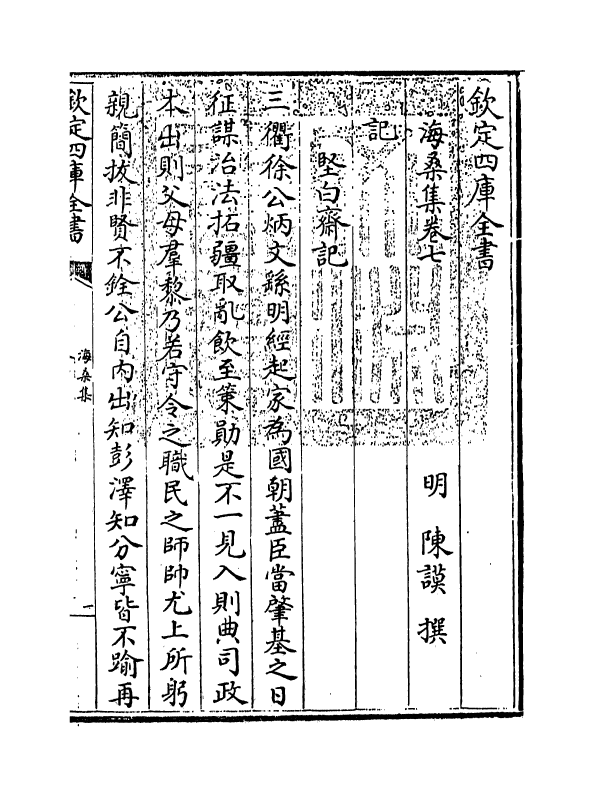 欽定四庫全書
海桑集卷七
明 陳謨 撰
記
堅白齋記
三衢徐公炳文繇明經起家為國朝藎臣當肇基之日
征謀冶法拓疆取亂飲至策勛是不一見入則典司政
本出則父母羣黎乃若守令之職民之師帥尤上所躬
親簡拔非賢不銓公自内出知彭澤知分寧皆不踰再
欽定四庫全書
海桑集
一